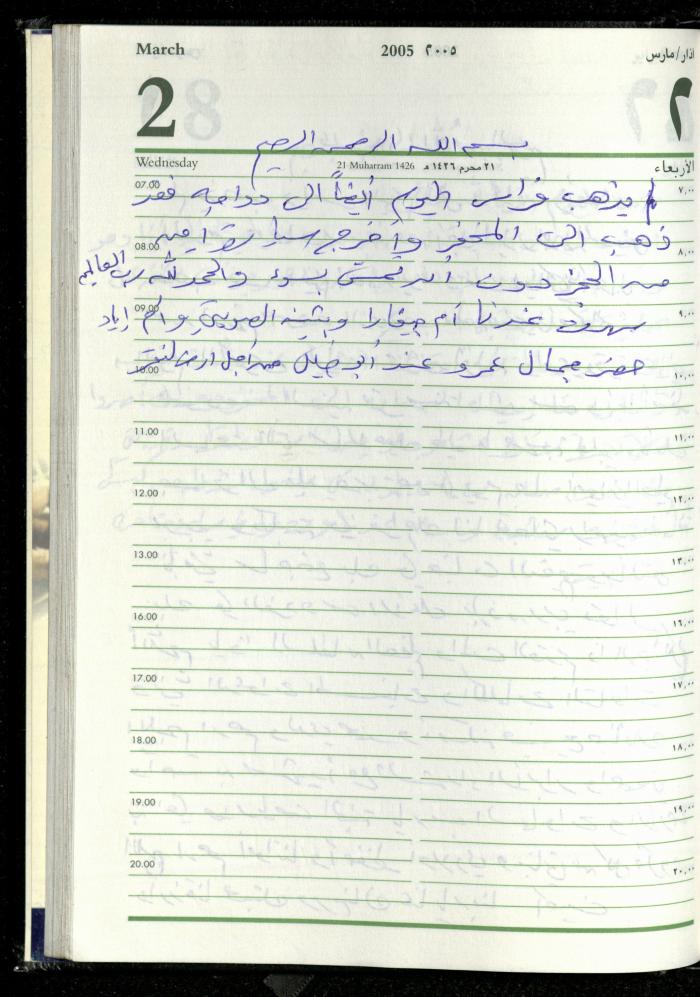 March 2005 ٢٠٠٥ اذار/مارس
2 ٢
بسم الله الرحمن الرحيم
Wednesday 21 Muharram 1426 ٢١ محرم ١٤٢٦ هـ الأربعاء
07.00 لم يذهب فراس اليوم أيضاً الى دوامه فقد ٧,٠٠
ذهب الى المخفر وأخرج سيارته
08.00 ٨,٠٠
من الحجز دون أن تمس بسوء والحمد لله رب العالمين
09.00 ٩,٠٠
سهرت عندنا أم جيفارا وبثينه وأم اياد
حضر جمال عمرو عند أبو خليل من أجل
10.00 ١٠,٠٠
11.00 ١١,٠٠
12.00 ١٢,٠٠
13.00 ١٣,٠٠
16.00 ١٦,٠٠
17.00 ١٧,٠٠
18.00 ١٨,٠٠
19.00 ١٩,٠٠
20.00 ٢٠,٠٠